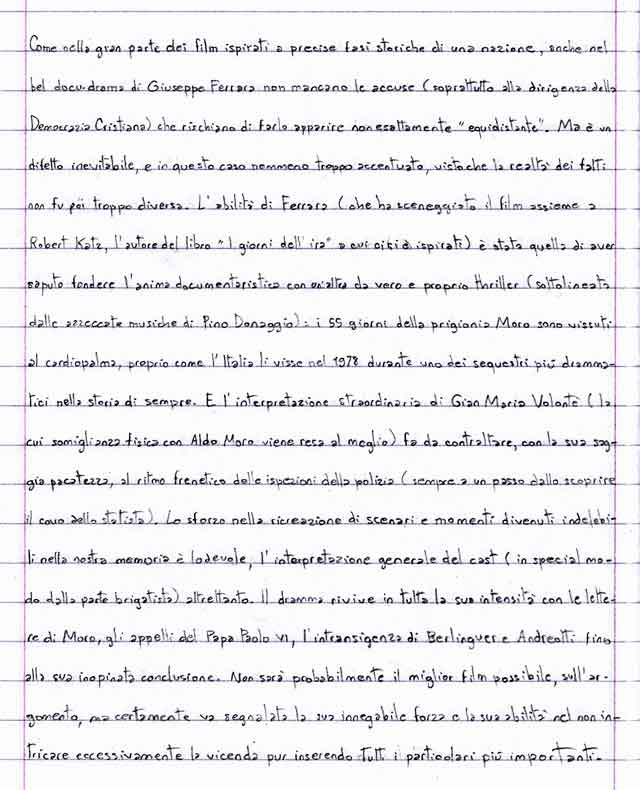 Come nella gran parte dei film ispirati a precise fasi storiche di una nazione, anche nel
bel docu-drama di Giuseppe Ferrara non mancano le accuse (soprattutto alla dirigenza della
Democrazia Cristiana) che rischiano di farlo apparire non esattamente "equidistante". Ma è un
difetto inevitabile, e in questo caso nemmeno troppo accentuato, visto che la realtà dei fatti
non fu poi troppo diversa. L'abilità di Ferrara (che ha sceneggiato il film assieme a
Robert Katz, l'autore del libro "I giorni dell'ira" a cui ci si è ispirati) è stata quella di aver
saputo fondere l'anima documentaristica con un'altra da vero e proprio thriller (sottolineata
dalle azzeccate musiche di Pino Donaggio): i 55 giorni della prigionia Moro sono vissuti
al cardiopalma, proprio come l'Italia li visse nel 1978 durante uno dei sequestri più dramma-
tici nella storia di sempre. E l'interpretazione straordinaria di Gian Maria Volontè (la
cui somiglianza fisica con Aldo Moro viene resa al meglio) fa da contraltare, con la sua sag-
gia pacatezza, al ritmo frenetico delle ispezioni della polizia (sempre a un passo dallo scoprire
il covo dello statista). Lo sforzo nella ricreazione di scenari e momenti divenuti indelebi-
li nella nostra memoria è lodevole, l'interpretazione generale del cast (in special mo-
do dalla parte brigatista) altrettanto. Il dramma rivive in tutta la sua intensità con le lette-
re di Moro, gli appelli del Papa Paolo VI, l'intransigenza di Berlinguer e Andreotti fino
alla sua inopinata conclusione. Non sarà probabilmente il miglior film possibile, sull'ar-
gomento, ma certamente va segnalata la sua innegabile forza e la sua abilità nel non in-
tricare eccessivamente la vicenda pur inserendo tutti i particolari più importanti.